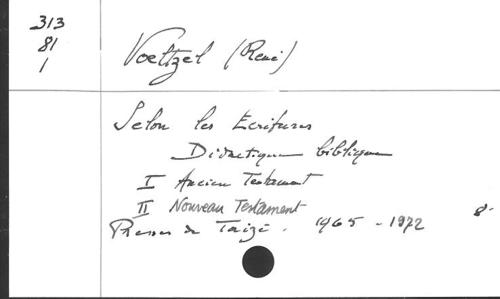 313
81
1
Voeltzel (René)
Selon les Ecritures
Didactique biblique
I Ancien Testament
II Nouveau Testament
Presses de Taizé. 1965 - 1972 8°